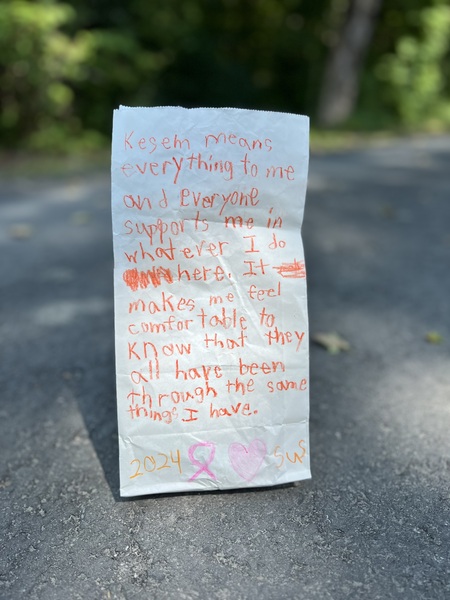 Kesem means
everything to me
and everyone
supports me in
whatever I do
here. It
makes me feel
comfortable to
know that they
all have been
through the same
things I have.
2024 SWS